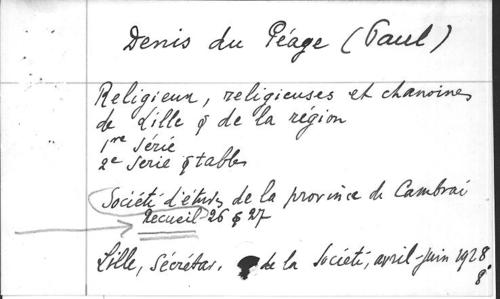 Denis du Péage (Paul)
Religieux, religieuses et chanoines
de Lille & de la région
1re série
2e série & tables
Société d'études de la province de Cambrai
Recueil 26 & 27
Lille, Secrétar. de la Société, avril-juin 1928
8°